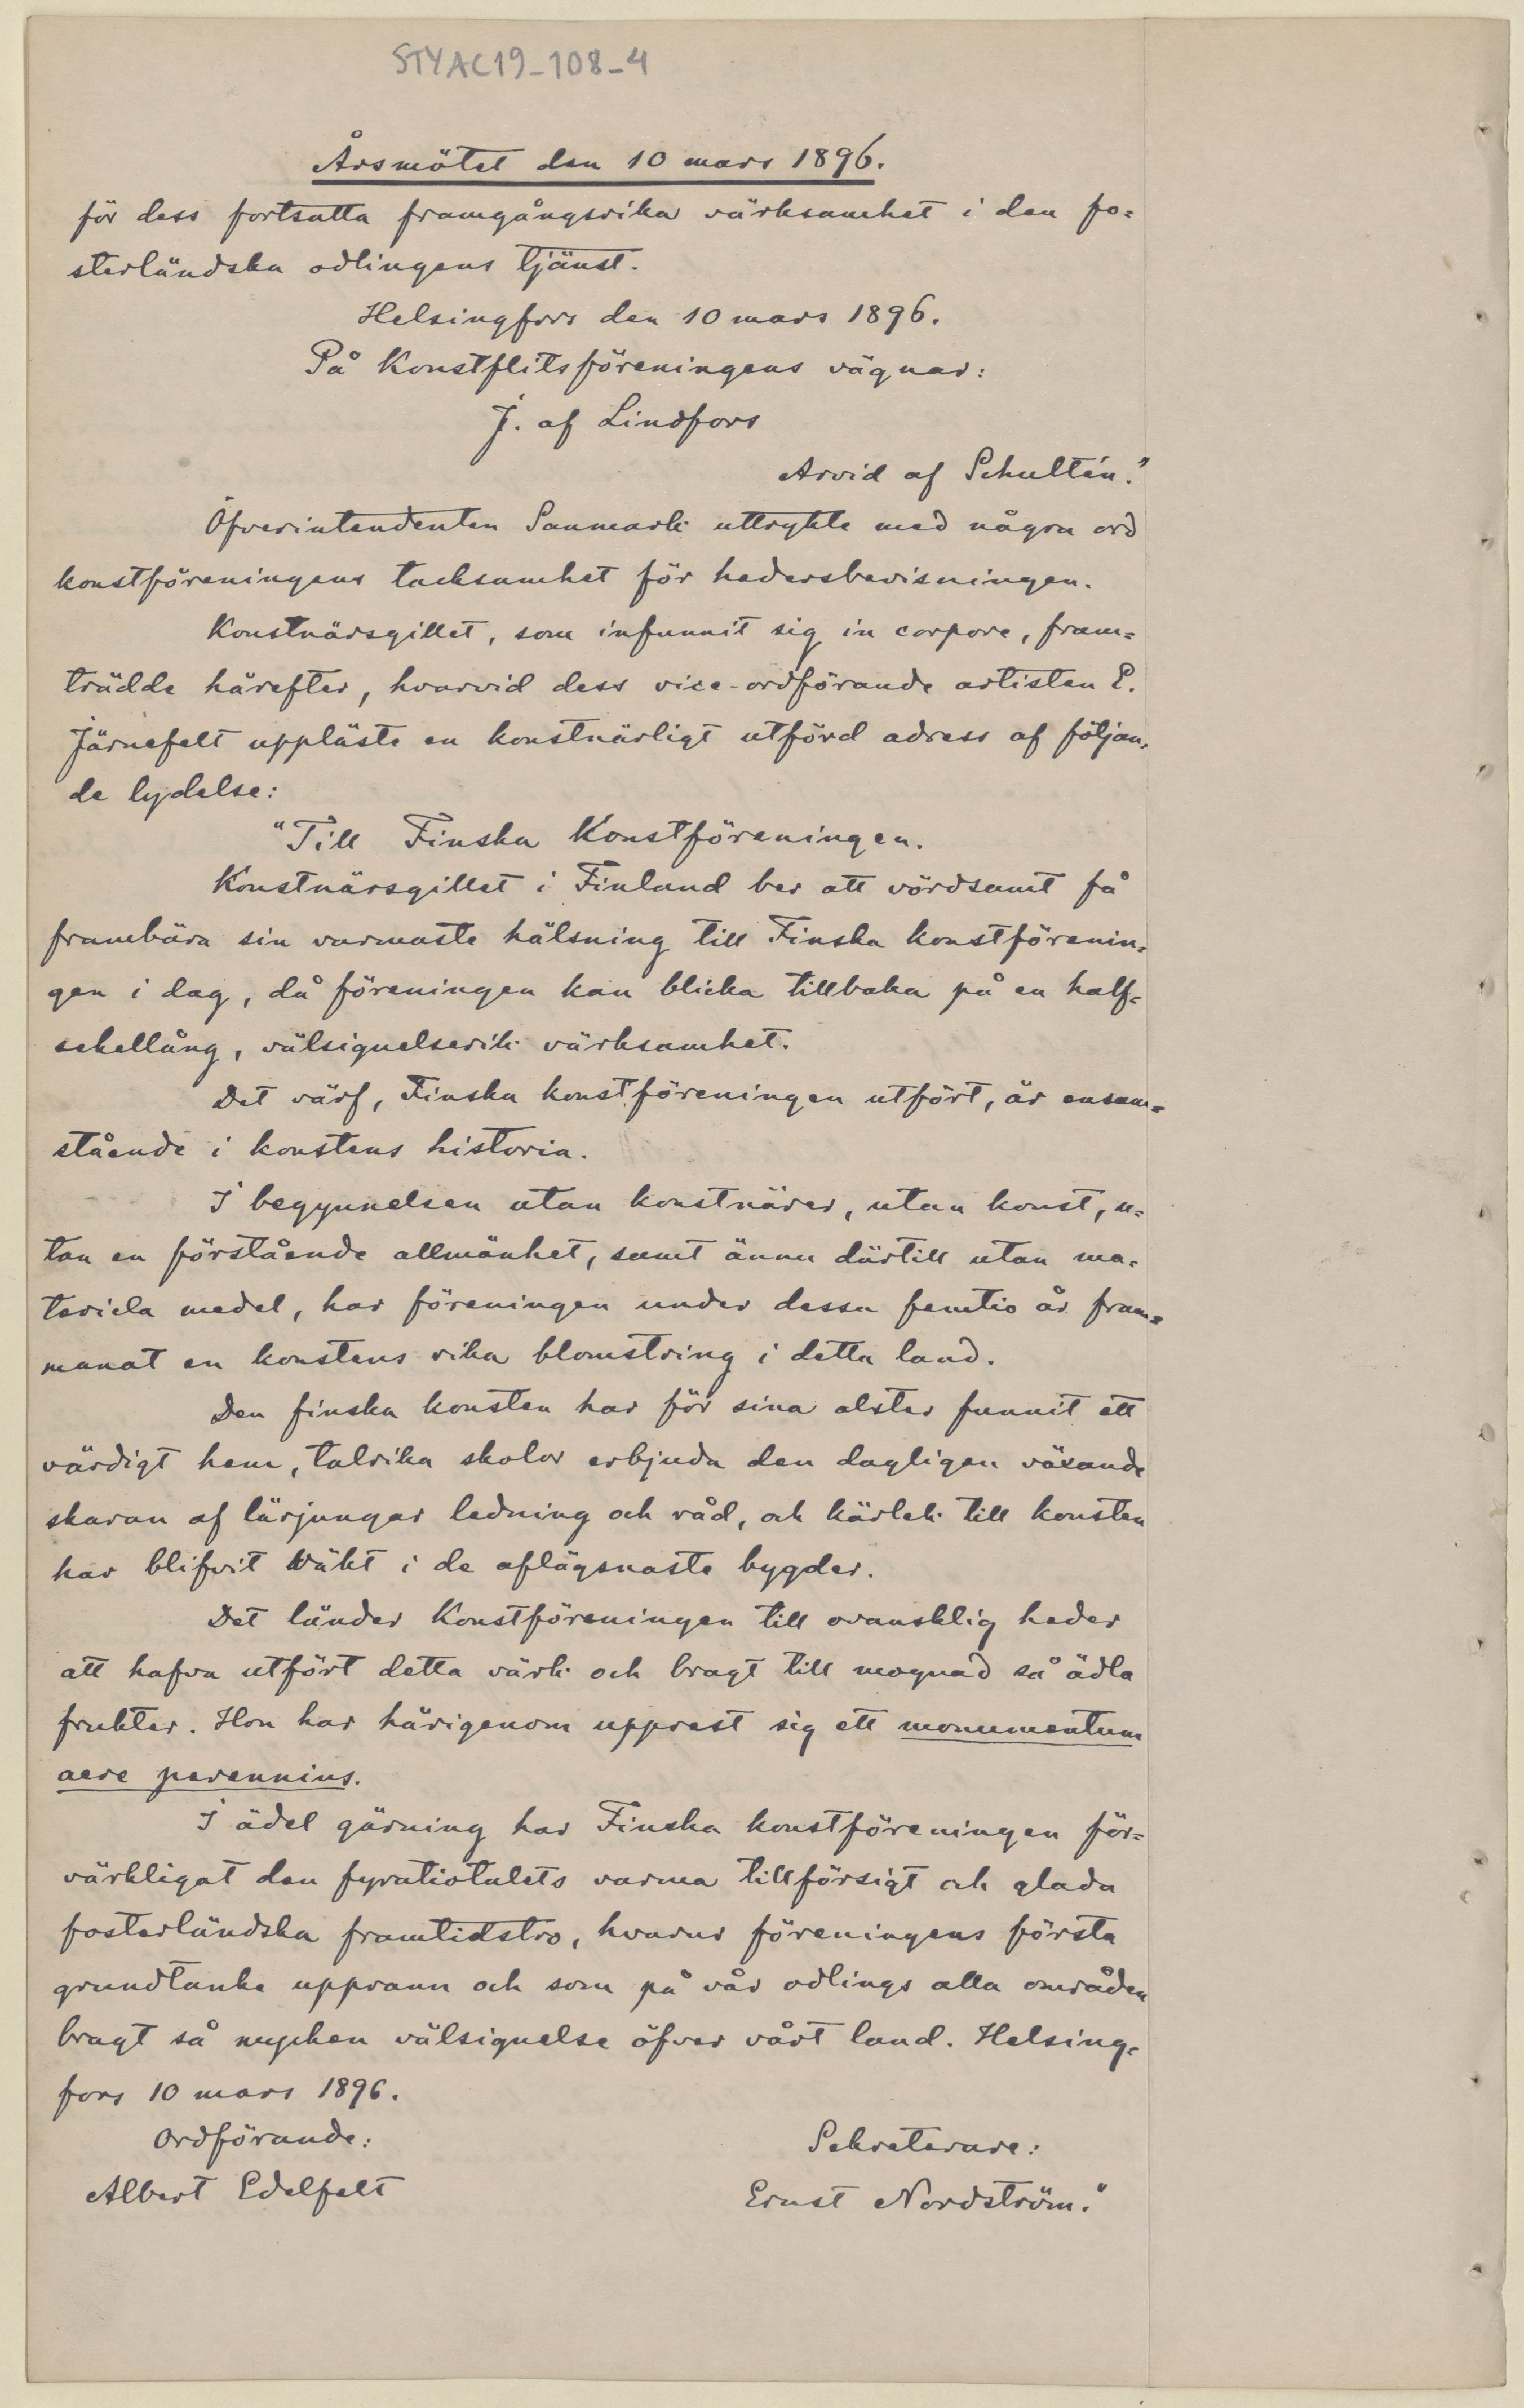 STYAC19-108-4
Årsmötet den 10 mars 1896.
för dess fortsatta framgångsrika värksamhet i den fo=
sterländska odlingens tjänst.
Helsingfors den 10 mars 1896.
På Konstflitsföreningens vägnar:
J. af Lindfors
Arvid af Schultén."
Öfverintendenten Sanmark uttrykte med några ord
konstföreningens tacksamhet för hedersbevisningen.
Konstnärsgillet, som infunnit sig in corpore, fram=
trädde härefter, hvarvid dess vice-ordförande artisten E.
Järnefelt uppläste en konstnärligt utförd adress af följan=
de lydelse:
"Till Finska Konstföreningen.
Konstnärsgillet i Finland ber att vördsamt få
frambära sin varmaste hälsning till Finska konstförenin=
gen i dag, då föreningen kan blicka tillbaka på en half=
sekellång, välsignelserik värksamhet.
Det värf, Finska konstföreningen utfört, är ensam=
stående i konstens historia.
I begynnelsen utan konstnärer, utan konst, u=
tan en förstående allmänhet, samt ännu därtill utan ma=
teriela medel, har föreningen under dessa femtio år fram=
manat en konstens rika blomstring i detta land.
Den finska konsten har för sina alster funnit ett
värdigt hem, talrika skolor erbjuda den dagligen växande
skaran af lärjungar ledning och råd, och kärlek till konsten
har blifvit väkt i de aflägsnaste bygder.
Det länder Konstföreningen till ovansklig heder
att hafva utfört detta värk och bragt till mognad så ädla
frukter. Hon har härigenom upprest sig ett monumentum
aere perennius.
I ädel gärning har Finska konstföreningen för=
värkligat den fyratiotalets varma tillförsigt och glada
fosterländska framtidstro, hvarur föreningens första
grundtanke upprann och som på vår odlings alla områden
bragt så mycken välsignelse öfver vårt land. Helsing=
fors 10 mars 1896.
Ordförande:
Sekreterare:
Albert Edelfelt
Ernst Nordström."